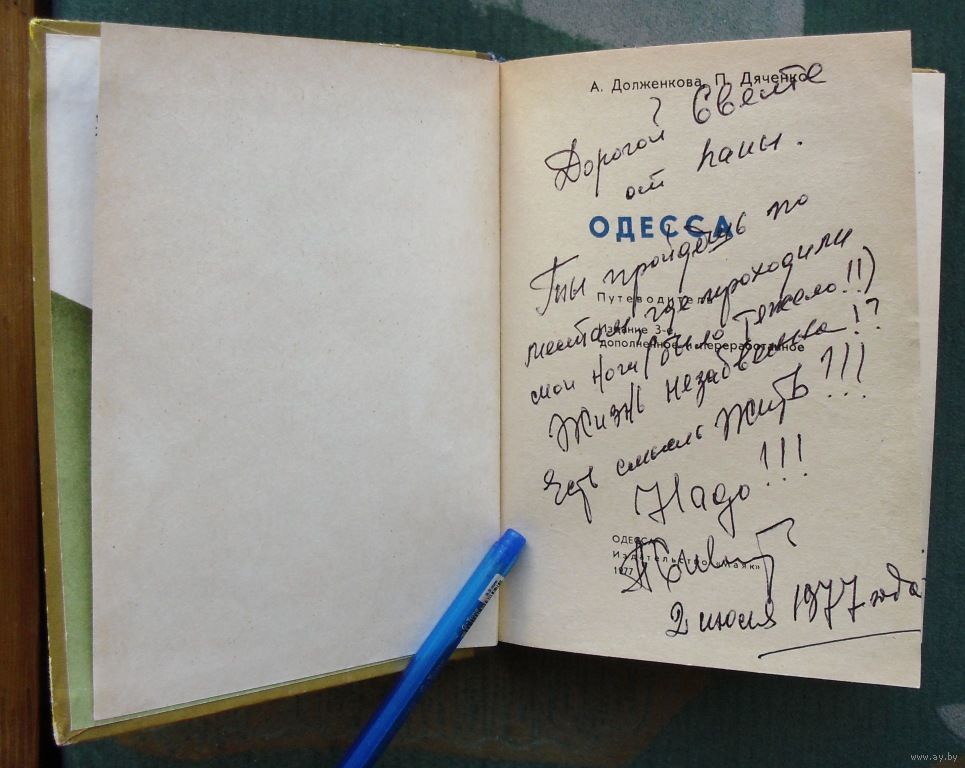 А. Долженкова, П. Дяченко
Дорогой Свете
от папы.
ОДЕССА
Ты пройдёшь по
Путеводитель
местам, где проходили
Издание 3-е,
дополненное и переработанное
мои ноги (было тяжело!!)
Жизнь незабвенна!?
Есть смысл жить!!!
Надо!!!
ОДЕССА
Издательство «Маяк»
1977
2 июля 1977 года
www.ay.by